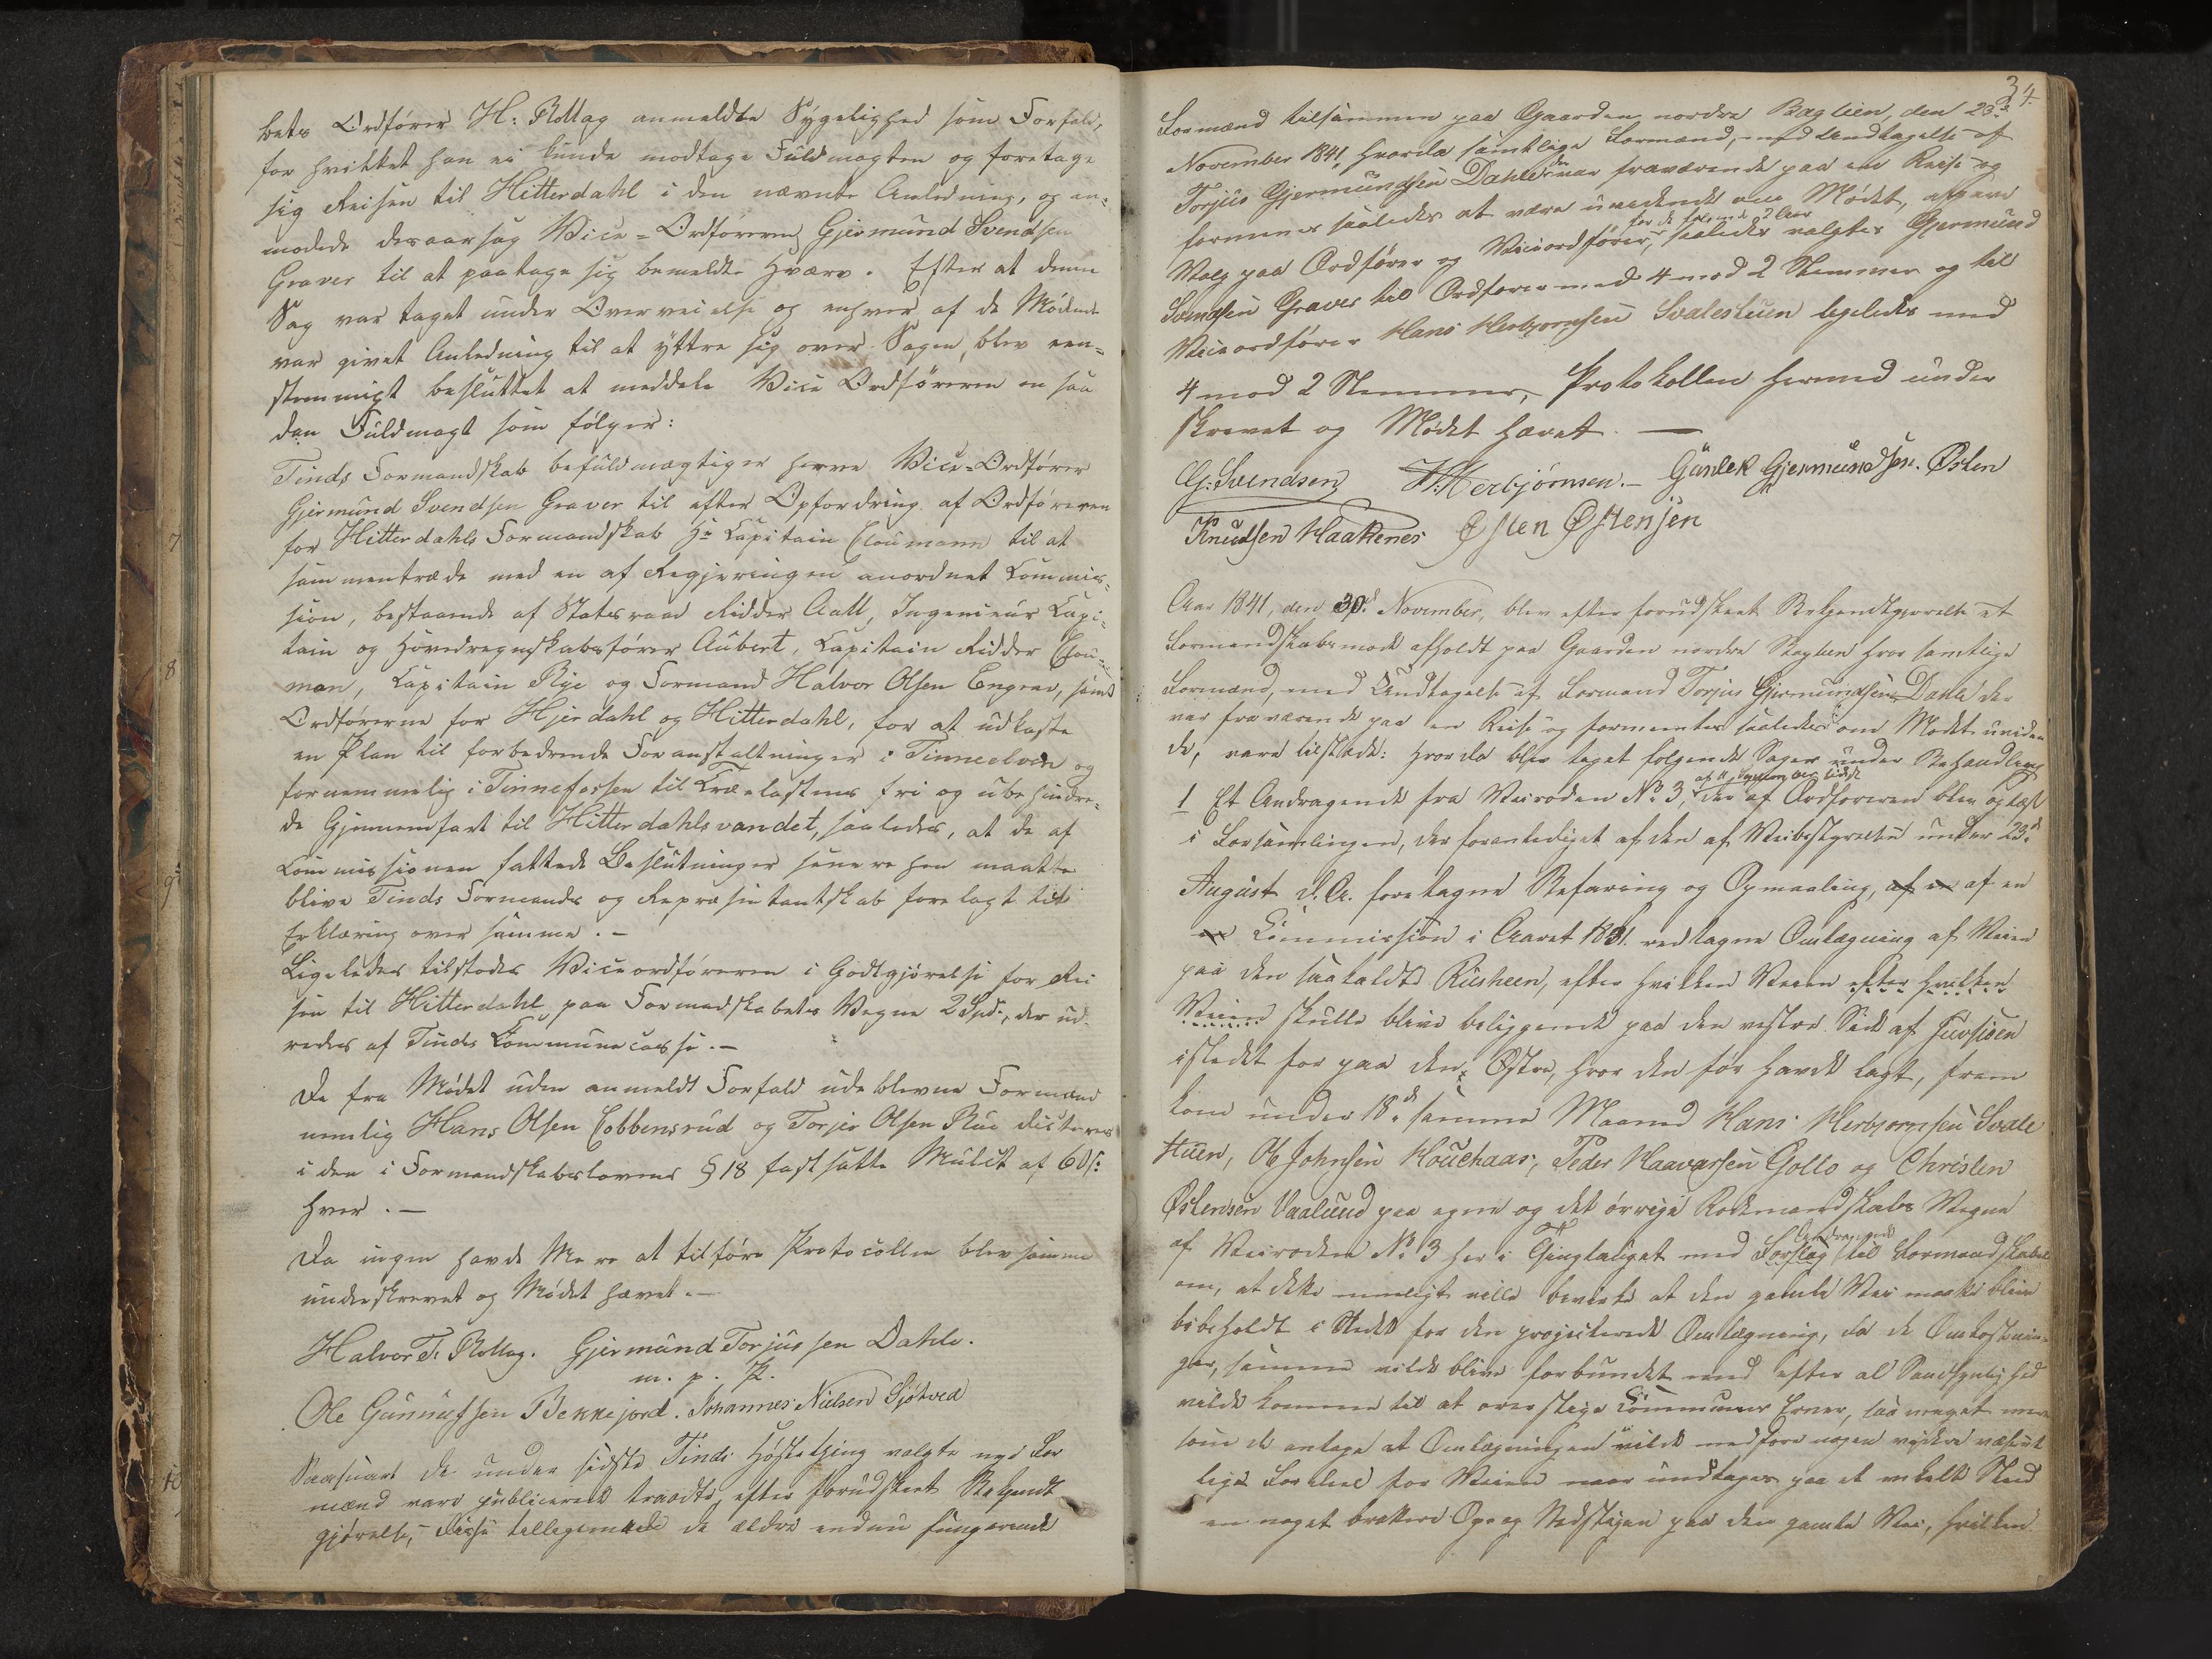 bets Ordfører H: Rollag anmeldte Sygelighed som Forfald,
for hvilket han ei kunde modtage Fuldmagten og foretage
sig Reisen til Hitterdahl i den nævnte Anledning, og an-
modede desaarsag Vice-Ordføreren Gjermund Svendsen
Graver til at paatage sig bemeldte Hværv. Efter at denne
Sag var taget under Overveielse og enhver af de Mødende
var givet Anledning til at yttre sig over Sagen, blev een-
stemmigt besluttet at meddele Vice Ordføreren en saa
dan Fuldmagt som følger:
Tinds Formandskab befuldmægtiger herved Vice-Ordfører
Gjermund Svendsen Graver til efter Opfordring af Ordføreren
for Hitterdahls Formandskab Hr Capitain Cloumann til at
sammentræde med en af Regjeringen anordnet Commis-
sion, bestaaende af Statsraad Ridder Aall, Ingenieur Capi-
tain og Hovedregnskabsfører Aubert, Capitain Ridder Clou-
man, Capitain Rye og Formand Halvor Olsen Engrav, samt
Ordførerne for Hjerdahl og Hitterdahl, for at udkaste
en Plan til forbedrende Foranstaltninger i Tinneelven og
fornemmelig i Tinnefossen til Trælastens fri og ubehindre-
de Gjennemfart til Hitterdahlsvandet, saaledes, at de af
Commissionen fattede Beslutninger senere hen maatte
blive Tinds Formands og Repræsentantskab forelagt til
Erklæring over samme. -
Ligeledes tilstodes Viceordføreren i Godtgjørelse for Rei
sen til Hitterdahl paa Formadskabets Vegne 2 Spd:, der ud-
redes af Tinds Communecasse. -
De fra Mødet uden anmeldt Forfald udeblevne Formænd
nemlig Hans Olsen Cobbensrud og Torjer Olsen Rue dicteres
i den i Formandskabslovens § 18 fastsatte Mulct af 60 s:
hver. -
Da ingen havde Mere at tilføre Protocollen blev samme
underskrevet og Mødet hævet. -
Halvor T. Rollag. Gjermund Torjussen Dahle.
m. p. P.
Ole Gunnufsen Bekkejord. Johannes Nielsen Sjøtved
Saasnart de under sidste Tinds Høstething valgte nye For
mænd vare publicerede traadte, efter forudskeet Bekjendt
gjørelse, disse tillegemed de ældre endnu fungerende
34.
Formænd tilsammen paa Gaarden nordre Bøglien, den 23de
November 1841, hvorda samtlige Formænd, med Undtagelse af
Torjus Gjermundsen Dahle der var fraværende paa en Reise og
formenes saaledes at være uvidende om Mødet, afgave
for de følgende 2 Aar
Valg paa Ordfører og Viceordfører, saaledes valgtes Gjermund
Svendsen Graver til Ordfører med 4 mod 2 Stemmer og til
Viceordfører Hans Herbjørnsen Svalestuen ligeledes med
4 mod 2 Stemmer, Protokollen hermed under
skrevet og Mødet hævet. -
G: Svendsen H: Herbjørnsen. - Gunlek Gjermundsen. Østen
Knudsen Haakenes Østen Østensen
Aar 1841, den 30d November, blev efter forudskeet Bekjendtgjørelse et
Formandskabsmøde afholdt paa Gaarden nordre Bøglien hvor samtlige
Formænd, med Undtagelse af Formand Torjus Gjermundsen Dahle der
var fraværende paa en Reise og formeentes saaledes om Mødet uviden
de, vare tilstede: hvorda blev taget følgende Sager under Behandling
1 Et Andragende fra Veiroden No 3, der af Ordføreren blev oplæst
i Forsamlingen, der foranlediget af den af Veibestyrelse under 23d
August d. A. foretagne Befaring og Opmaaling, af en af en
en Commission i Aaret 1831. vedtagne Omlægning af Veien
paa den saakaldte Rusheen, efter hvilken Veien efter hvilken
Veien skulle blive beliggende paa den vestre Side af
istedet for paa den Østre, hvor den før havde lagt, frem
kom under 18d samme Maaned Hans Herbjørnsen Svale
stuen, Ole Johnsen Houchaas, Peder Haavarsen Gollo og Christen
Østensen Vaalund paa egne og det øvrige Rodemandskabs Vegne
af Veiroden No 3 her i Thinglauget med Forslag Andragende til Formandskabet
om, at dette muligt ville bevirke at den gamle Vei maatte blive
bibeholdt i Stedet for den projecterede Omlægning, da de Omkostnin-
ger, samme vilde blive forbundet med efter al Sandsynlighed
vilde komme til at overstige Communens Evner, saa meget mere
som de antage at Omlægningen ei vilde medføre nogen videre væsent
lige Fordeel for Veien naar undtages paa et enkelt Sted
en noget brattere Op og Nedstigen paa den gamle Vei, hvilken